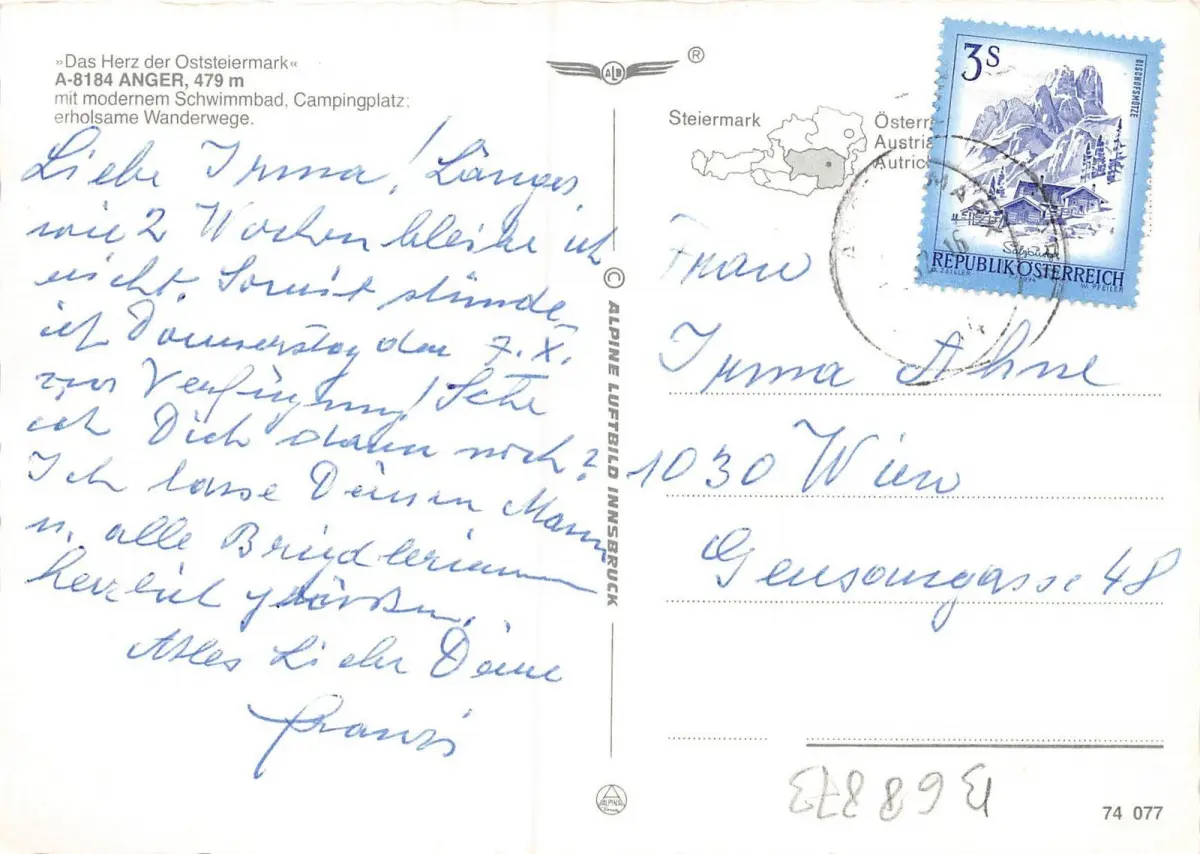 »Das Herz der Oststeiermark«
A-8184 ANGER, 479 m
mit modernem Schwimmbad, Campingplatz;
erholsame Wanderwege.
Liebe Irma! Länger
wie 2 Wochen bleibe ich
nicht. Somit stünde
ich Donnerstag den 7. X.
zur Verfügung! Sehe
ich Dich dann noch?
Ich lasse Deinen Mann
u. alle
herzlich grüßen.
Alles Liebe Deine
Franzi
© ALPINE LUFTBILD INNSBRUCK
ALB
®
Steiermark
Österre
Austria
Autric
3 S
BISCHOFSMÜTZE
Salzburg
REPUBLIK ÖSTERREICH
O. ZEILLER
W. PFEILER
16
Frau
Irma Ahne
1030 Wien
48
ALPINE
74 077